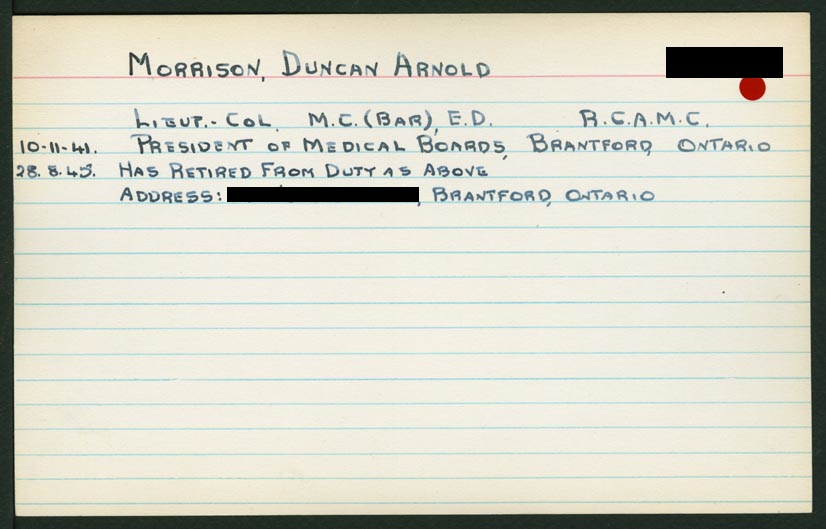 MORRISON, DUNCAN ARNOLD
LIEUT.- COL. M.C. (BAR), E.D. R.C.A.M.C.
10-11-41. PRESIDENT OF MEDICAL BOARDS, BRANTFORD, ONTARIO
28.8.45. HAS RETIRED FROM DUTY AS ABOVE
ADDRESS: , BRANTFORD, ONTARIO